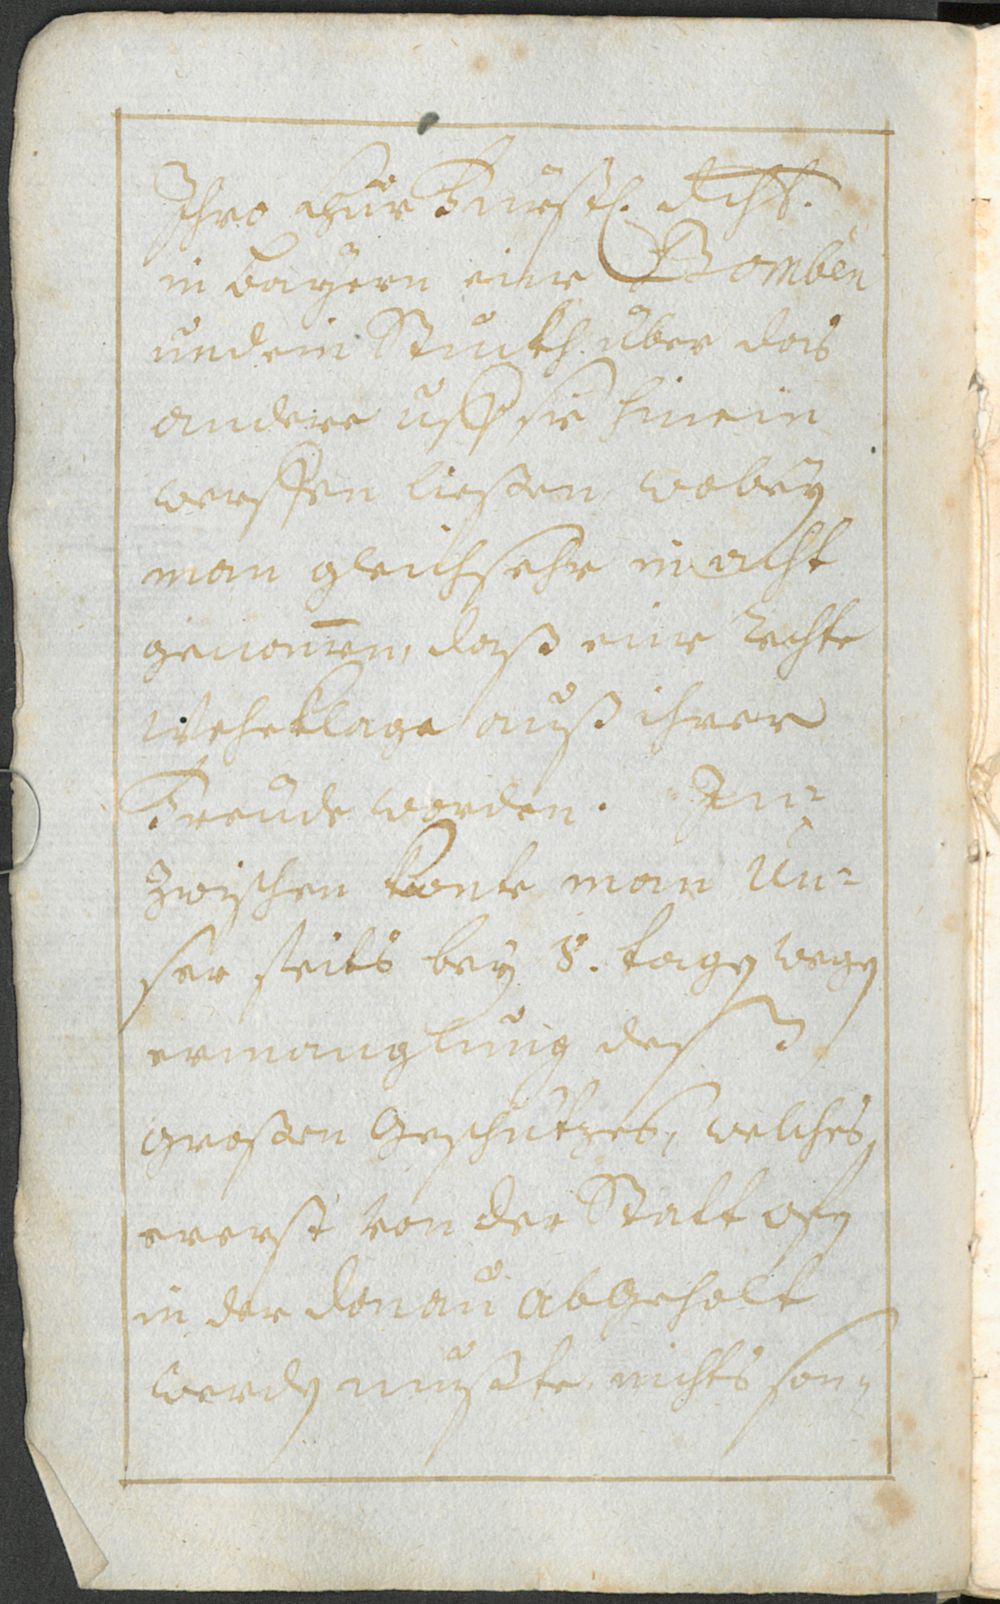 Ihro Chur Fürstl. dchl.
in Bayern eine Bomben
und ein Stuckh über das
andere uff sie hinein
werffen liessen, wobey
man gleich sehr in acht
genom̅en, daß eine rechte
Weheklage auß ihrer
Freude worden. In=
zwischen konte man Un=
ser seits bey 8. tagen wegen
ermanglung deß
grossen Geschützes, welches
ererst von der Statt Ofen
in der Donau abgeholt
werden muste, nichts son=